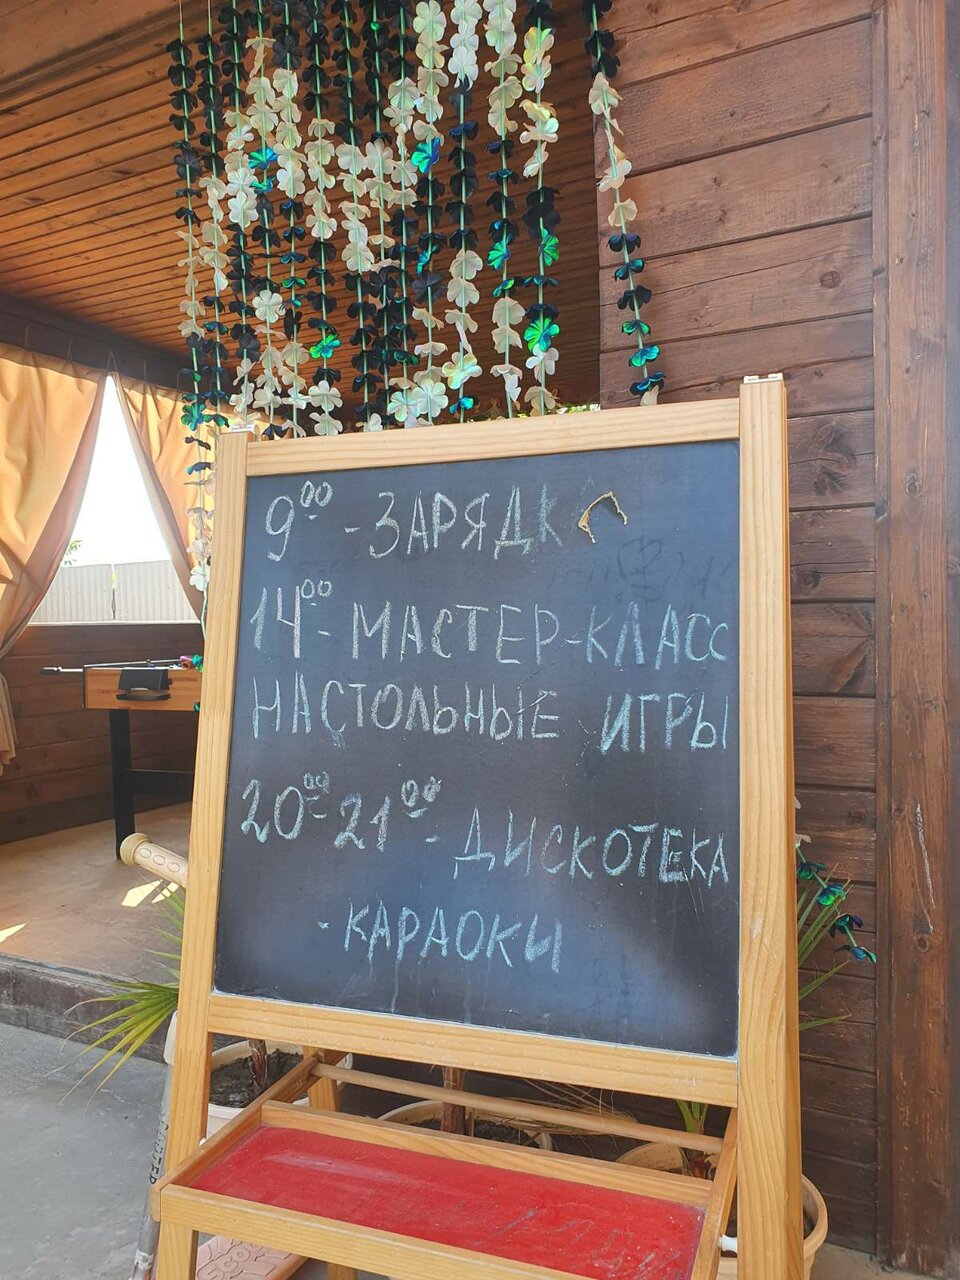 9⁰⁰ - ЗАРЯДК
14⁰⁰ - МАСТЕР-КЛАСС
НАСТОЛЬНЫЕ ИГРЫ
20⁰⁰ - 21⁰⁰ - ДИСКОТЕКА
- КАРАОКИ